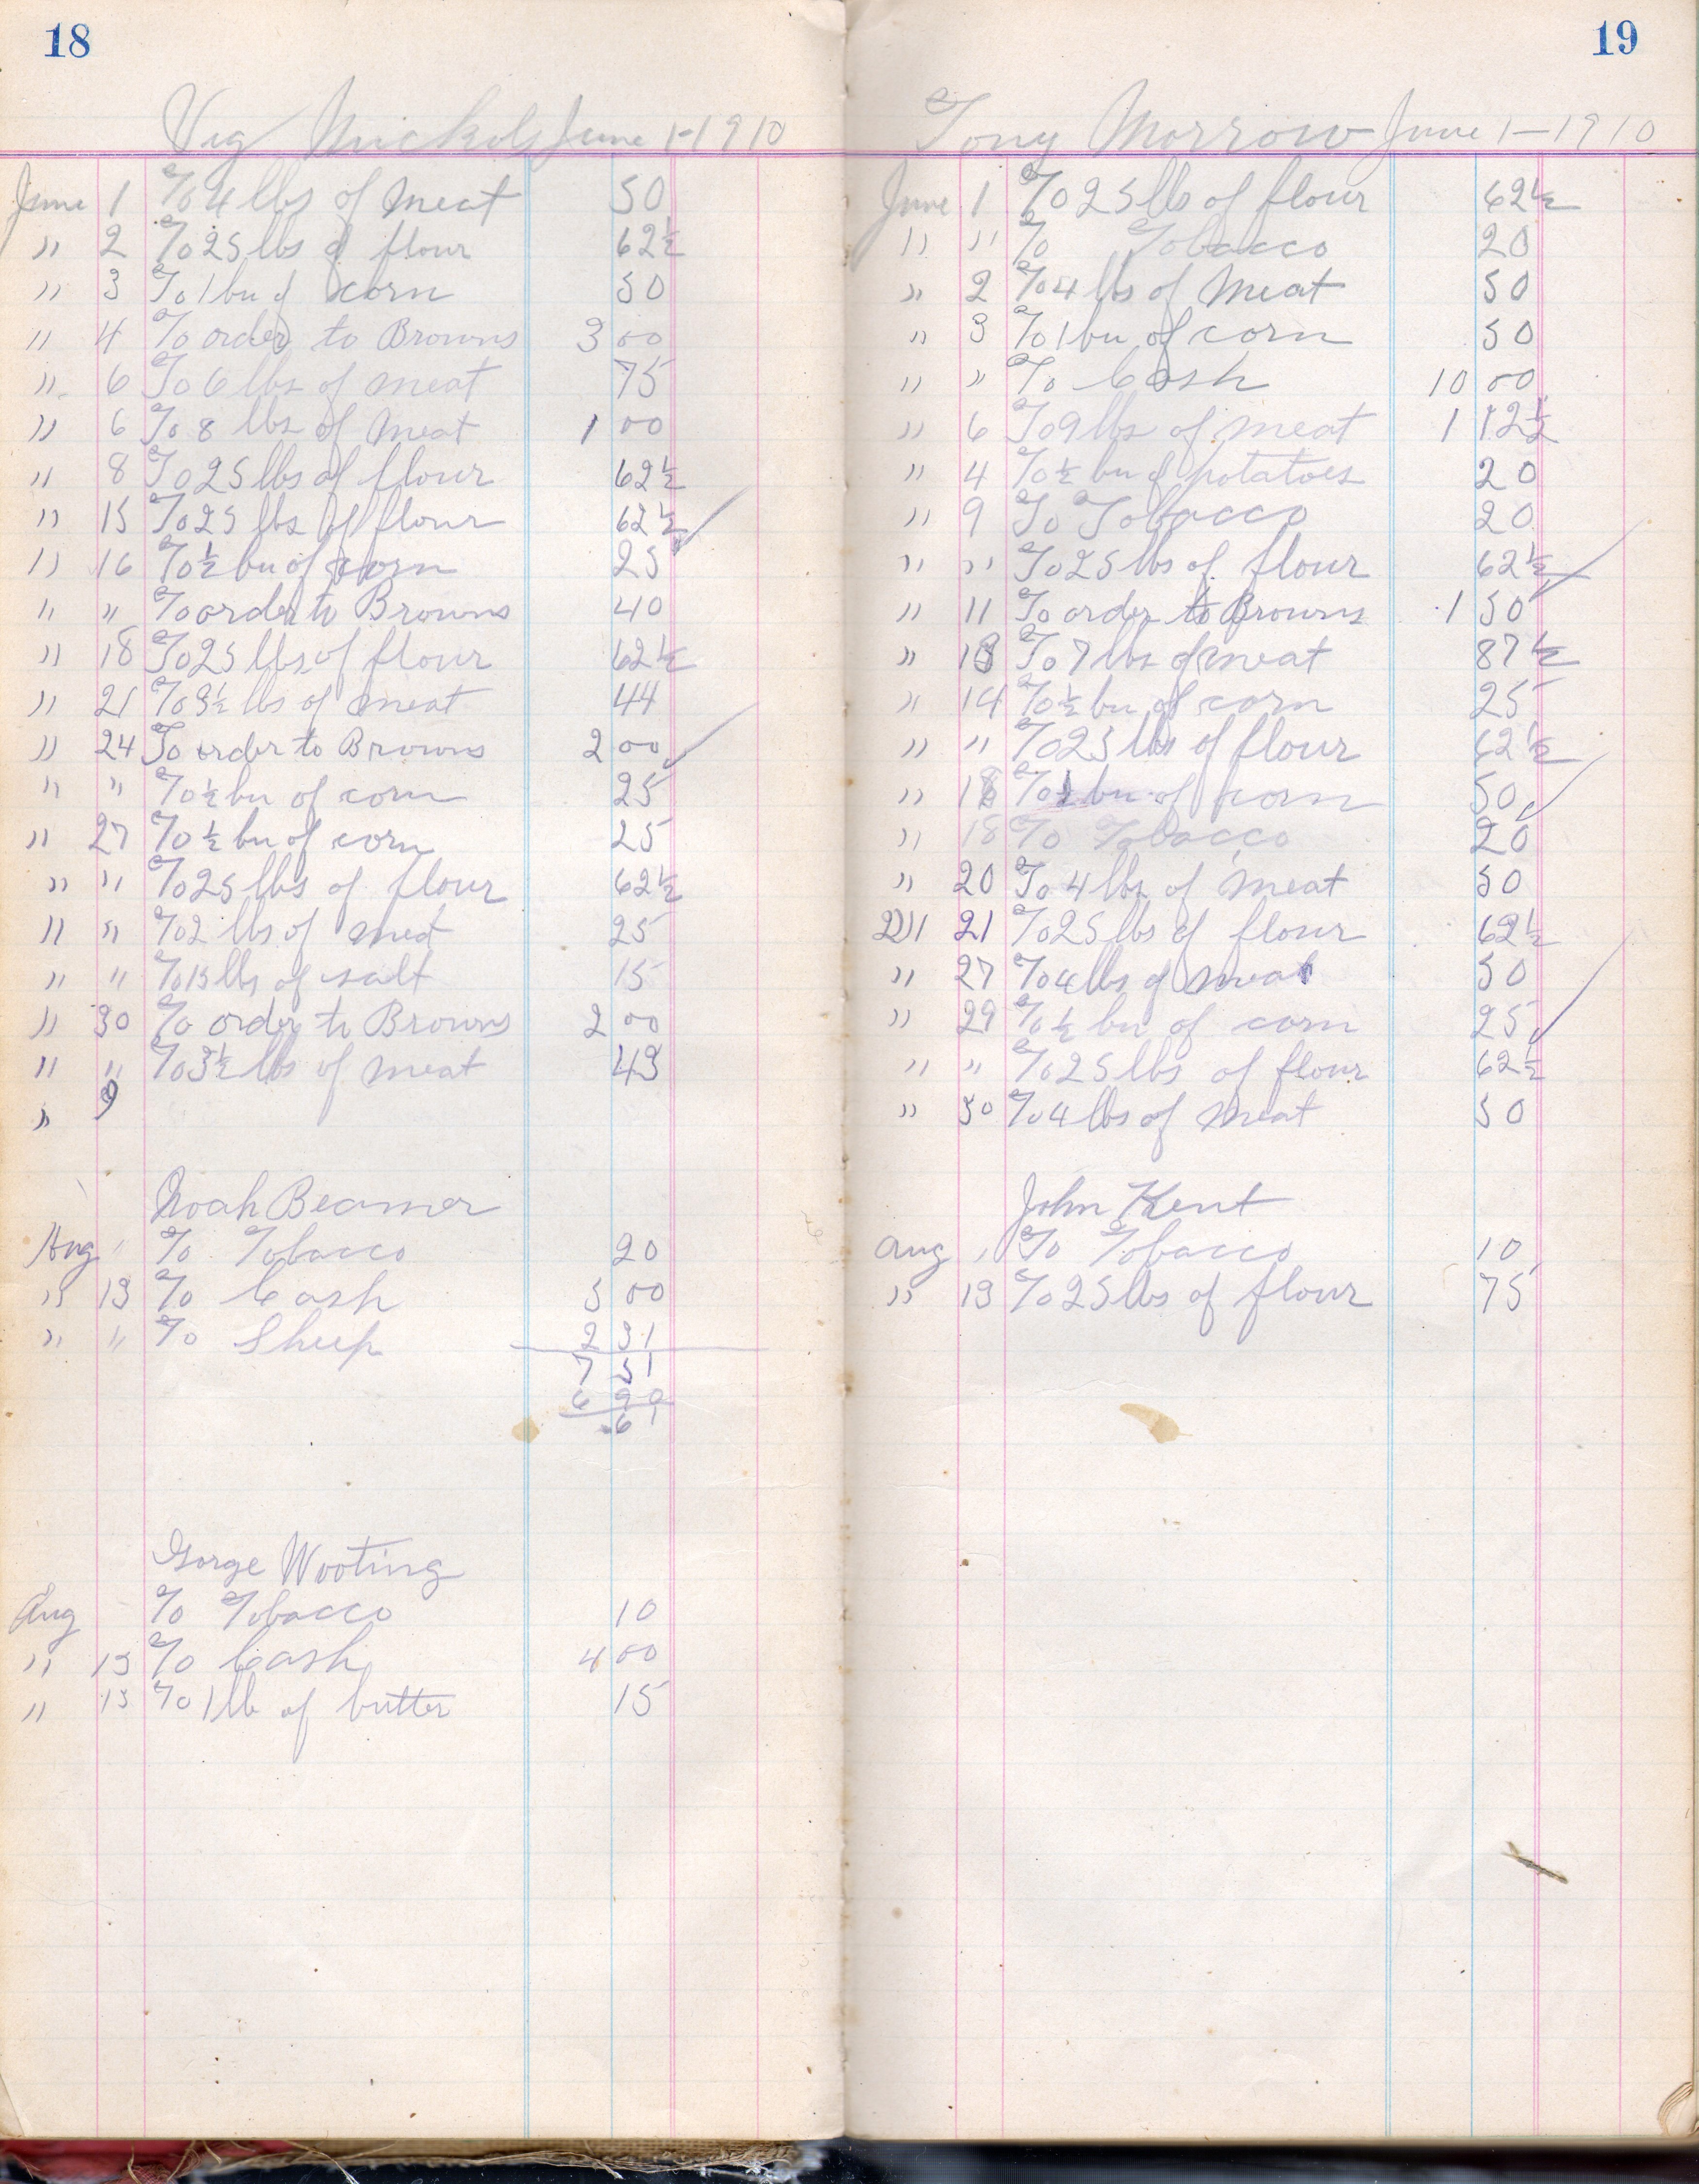 18
Vig Nickols June 1-1910
June 1 To 4 lbs of meat 50
" 2 To 25 lbs of flour 62½
" 3 To 1 bu of corn 50
" 4 To order to Browns 3 00
" 6 To 6 lbs of meat 75
" 6 To 8 lbs of meat 1 00
" 8 To 25 lbs of flour 62½
" 15 To 25 lbs of flour 62½
" 16 To ½ bu of corn 25
" " To order to Browns 40
" 18 To 25 lbs of flour 62½
" 21 To 3½ lbs of meat 44
" 24 To order to Browns 2 00
" " To ½ bu of corn 25
" 27 To ½ bu of corn 25
" " To 25 lbs of flour 62½
" " To 2 lbs of meat 25
" " To 15 lbs of salt 15
" 30 To order to Browns 2 00
" " To 3½ lbs of meat 43
" 9
Noah Beamer
Aug " To Tobacco 20
" 13 To Cash 5 00
" " To Sheep 2 31
7 51
6 90
61
Gorge Wooting
Aug To Tobacco 10
" 13 To Cash 4 00
" 13 To 1 lb of butter 15
19
Tony Morrow June 1-1910
June 1 To 25 lbs of flour 62½
" " To Tobacco 20
" 2 To 4 lbs of meat 50
" 3 To 1 bu of corn 50
" " To Cash 10 00
" 6 To 9 lbs of meat 1 12½
" 4 To ½ bu of potatoes 20
" 9 To Tobacco 20
" " To 25 lbs of flour 62½
" 11 To order to Browns 1 50
" 13 To 7 lbs of meat 87½
" 14 To ½ bu of corn 25
" " To 25 lbs of flour 62½
" 18 To 1 bu of corn 50
" 18 To Tobacco 20
" 20 To 4 lbs of meat 50
" 21 To 25 lbs of flour 62½
" 27 To 4 lbs of meat 50
" 29 To ½ bu of corn 25
" " To 25 lbs of flour 62½
" 30 To 4 lbs of meat 50
John Kent
Aug " To Tobacco 10
" 13 To 25 lbs of flour 75